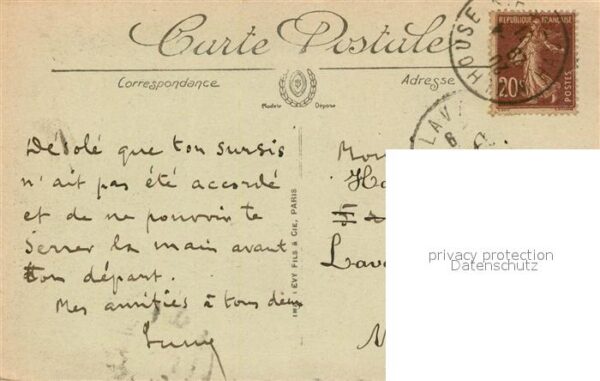 Carte Postale
Correspondance
Adresse
Modèle Déposé
REPUBLIQUE FRANÇAISE
20c
POSTES
HOUSE
LAVA
Désolé que ton sursis
n'ait pas été accordé
et de ne pouvoir te
serrer la main avant
ton départ.
Mes amitiés à tous deux
LEVY FILS & CIE, PARIS
Mon
Ha
Lava
privacy protection
Datenschutz